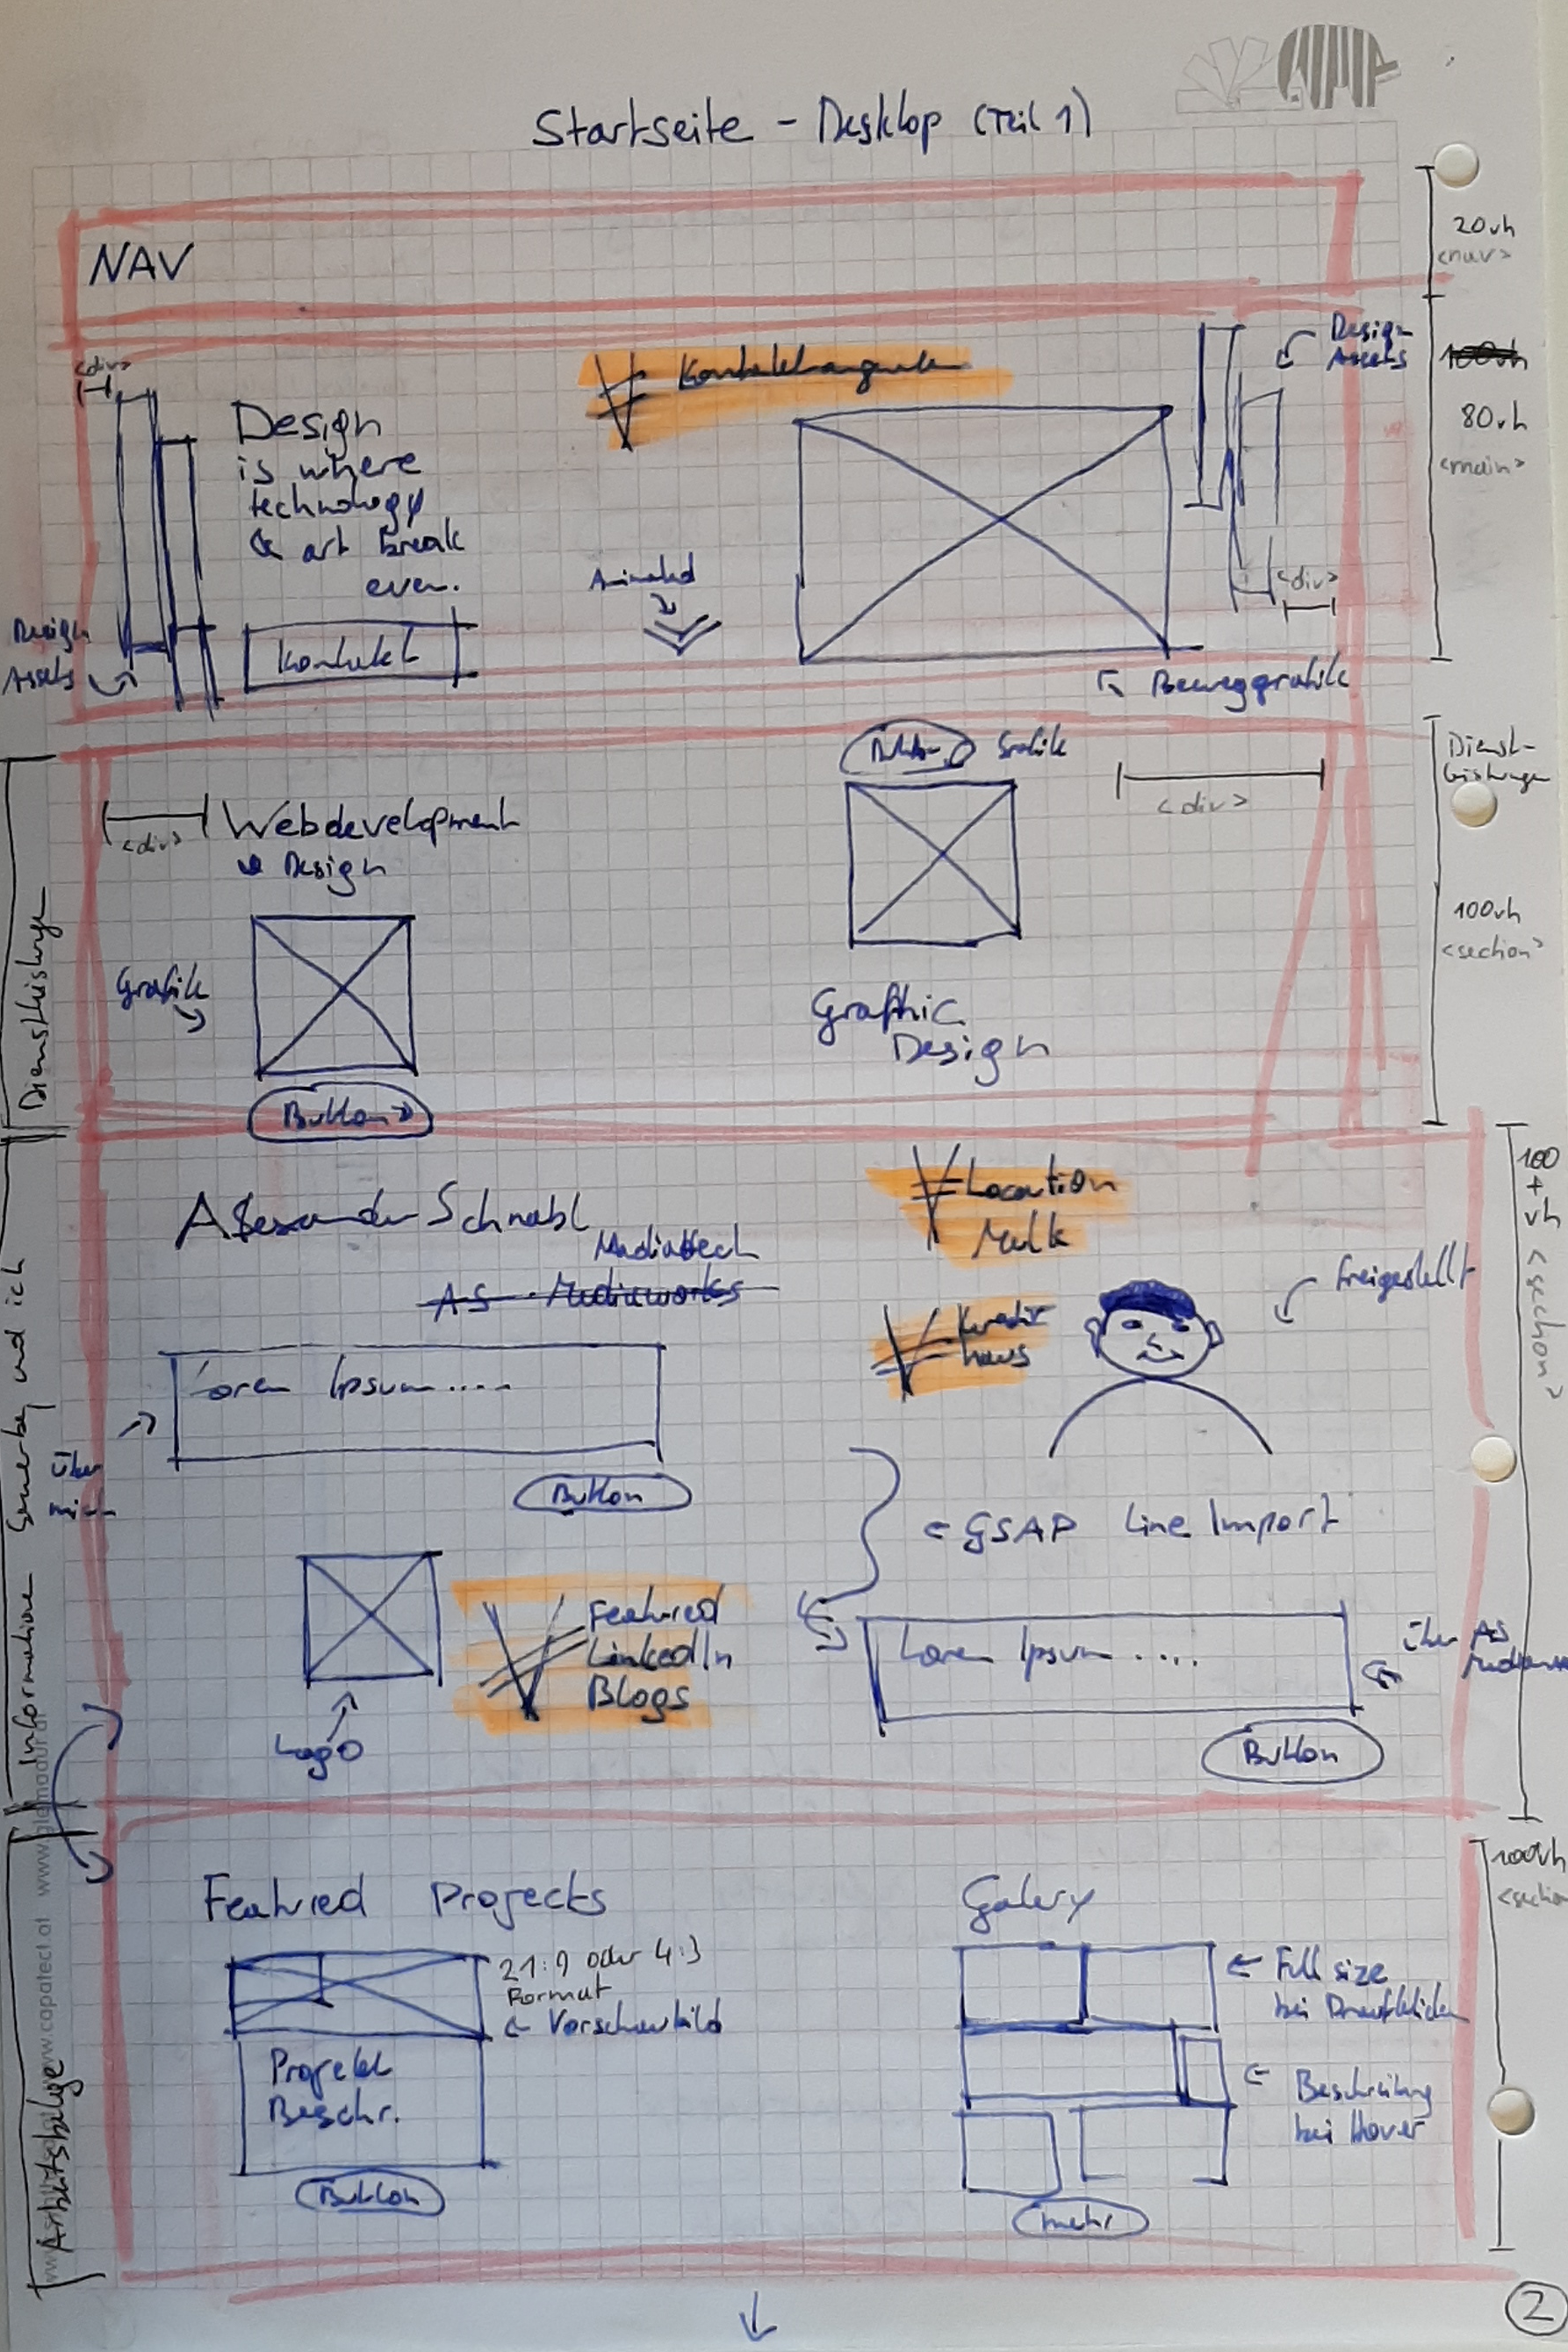 Startseite - Desktop (Teil 1)
NAV
20vh
<nav>
<div>
Design
Assets
100vh
80vh
<main>
Design
is where
technology
& art break
even.
Animated
<div>
Design
Assets
Kontakt
Beweggrafik
Button
Grafik
Dienst-
leistungen
<div>
<div>
Webdevelopment
& Design
100vh
<section>
Grafik
Graphic
Design
Button
Dienstleistunge
Alexander Schnabl
Mediatech
AS Mediaworks
Location
100
+
vh
<section>
freigestellt
haus
Lorem Ipsum....
Über
mich
Button
GSAP Line Import
Featured
LinkedIn
Blogs
Lorem Ipsum....
über AS
Logo
Button
Informatione
und ich
Featured Projects
Galery
100vh
<section
21:9 oder 4:3
Format
Vorschaubild
Full size
bei Draufklicken
Projekt
Beschr.
Beschreibung
bei Hover
Button
mehr
Arbeitsbelege
www.capatect.at
2